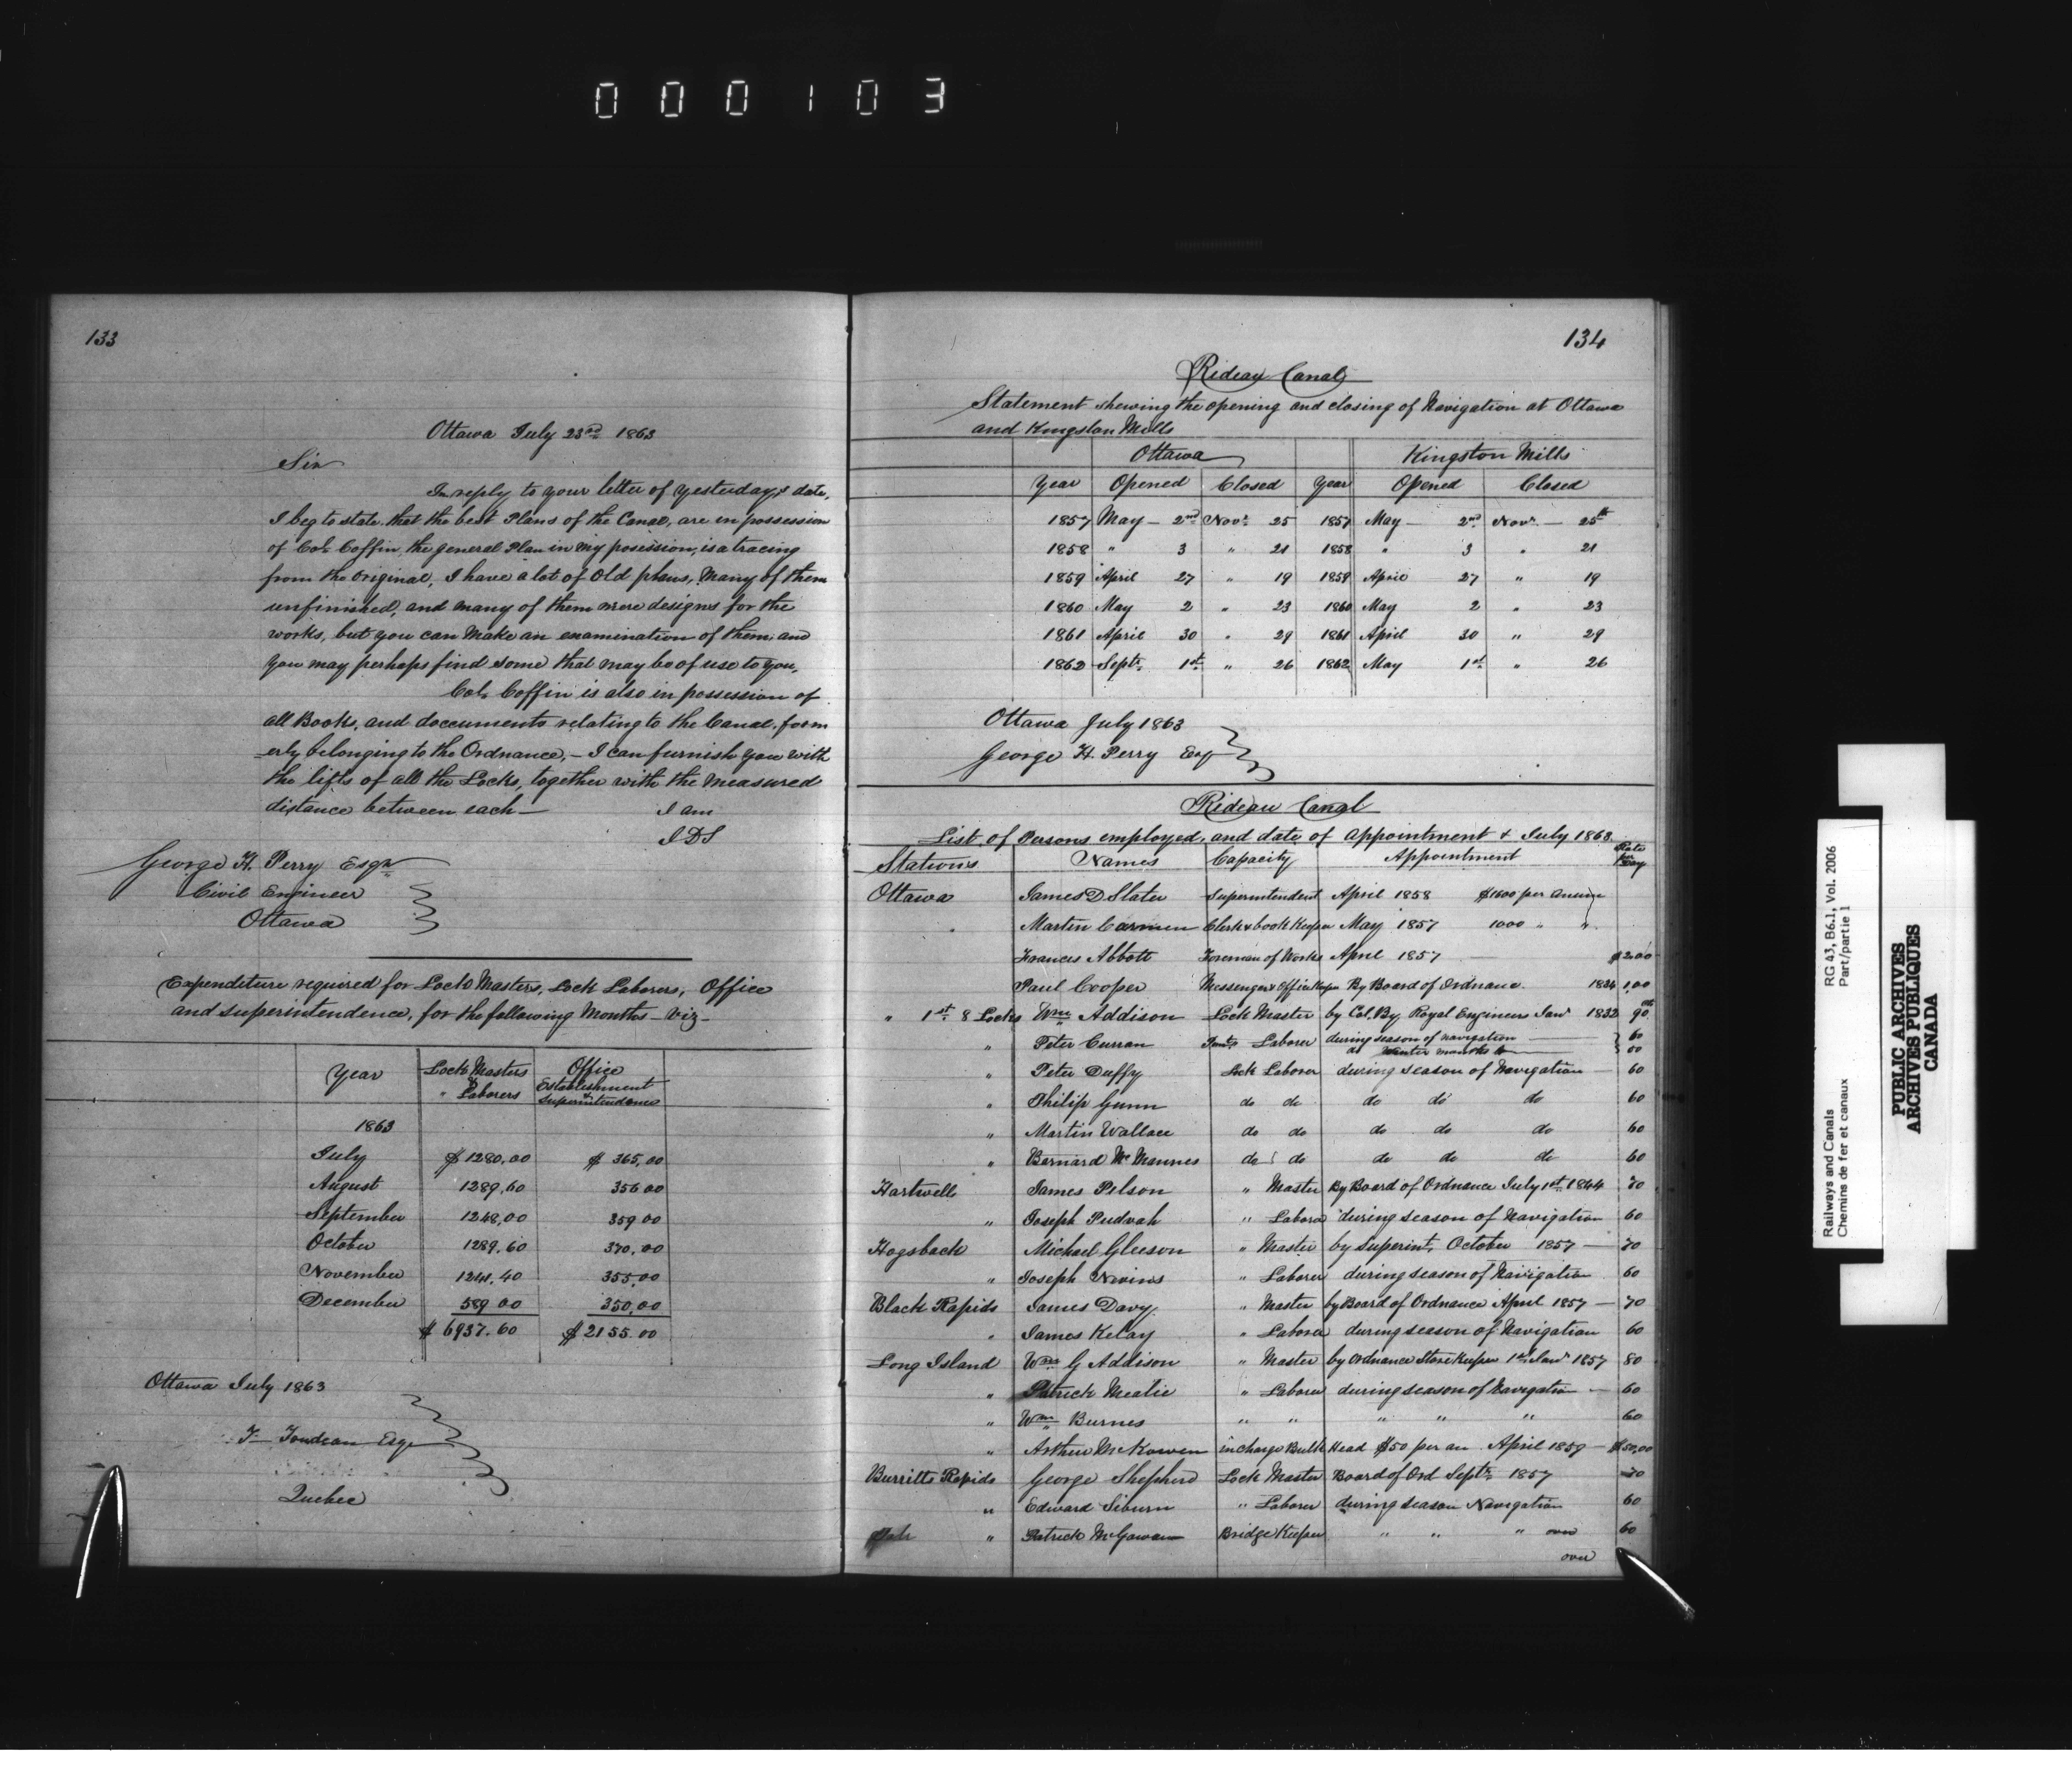 000103
133
Ottawa July 23rd 1863
Sir
In reply to your letter of yesterday's date,
I beg to state that the best Plans of the Canal, are in possession
of Col. Coffin, the general Plan in my posession, is a tracing
from the original, I have a lot of old plans, Many of them
unfinished, and many of them mere designs for the
works, but you can make an examination of them and
you may perhaps find some that may be of use to you,
Col. Coffin is also in possession of
all Books, and documents relating to the Canal, form
erly belonging to the Ordnance,- I can furnish you with
the lifts of all the Locks, together with the measured
distance between each-
I am
JDS
George H. Perry Esqr
Civil Engineer
Ottawa
Expenditure required for Lock Masters, Lock Laborers, Office
and superintendence, for the following Months - viz -
Year Lock Masters & Laborers Office Establishment & Superintendence
1863
July $1280,00 $365,00
August 1289,60 356 00
September 1248,00 359 00
October 1289,60 370,00
November 1241.40 355,00
December 589 00 350,00
$6937.60 $2155.00
Ottawa July 1863
Esqr
Quebec
134
Rideau Canal
Statement shewing the opening and closing of Navigation at Ottawa
and Kingston Mills
Ottawa Kingston Mills
Year Opened Closed Year Opened Closed
1857 May - 2nd Novr 25 1857 May - 2nd Novr - 25th
1858 " 3 " 21 1858 " 3 " 21
1859 April 27 " 19 1859 April 27 " 19
1860 May 2 " 23 1860 May 2 " 23
1861 April 30 " 29 1861 April 30 " 29
1862 Septr 1st " 26 1862 May 1st " 26
Ottawa July 1863
George H. Perry Esqr
Rideau Canal
List of Persons employed, and date of appointment & July 1863
Stations Names Capacity Appointment Rate per Day
Ottawa James D Slater Superintendent April 1858 $1600 per Annum
" Martin Carmen Clerk & book Keeper May 1857 1000 " "
Frances Abbott Foreman of Works April 1857 $2.00
Paul Cooper Messenger & Office Keeper By Board of Ordnance 1834 1,00
" 1st 8 Locks Wm Addison Lock Master by Col. By Royal Engineers Jany 1832 90
" Peter Curran Laborer during season of navigation 60
Winter months
" Peter Duffy Lock Laborer during season of Navigation 60
" Philip Gunn do do do do do 60
" Martin Wallace do do do do do 60
" Bernard McMannes do do do do do 60
Hartwells James Pilson " Master By Board of Ordnance July 1st 1844 70
" Joseph Pudvah " Laborer during season of Navigation 60
Hogsback Michael Gleeson " Master by Superint. October 1857 70
" Joseph Nevins " Laborer during season of Navigation 60
Black Rapids James Davy " Master by Board of Ordnance April 1857 - 70
" James Kelay " Laborer during season of Navigation 60
Long Island Wm G Addison " Master by Ordnance Store Keeper 1st Jany 1857 80
" Patrick Meatie " Laborer during season of Navigation - 60
" Wm Burnes " " " " " 60
" Arthur McKowen in charge Bulk Head $50 per an April 1859 - $50,00
Burritts Rapids George Shepherd Lock Master Board of Ord Septr 1857 70
" Edward Siburn " Laborer during season Navigation 60
" Patrick McGowan Bridge Keeper " " " over 60
over
Railways and Canals
Chemins de fer et canaux
RG 43, B6.1, Vol. 2006
Part/partie 1
PUBLIC ARCHIVES
ARCHIVES PUBLIQUES
CANADA